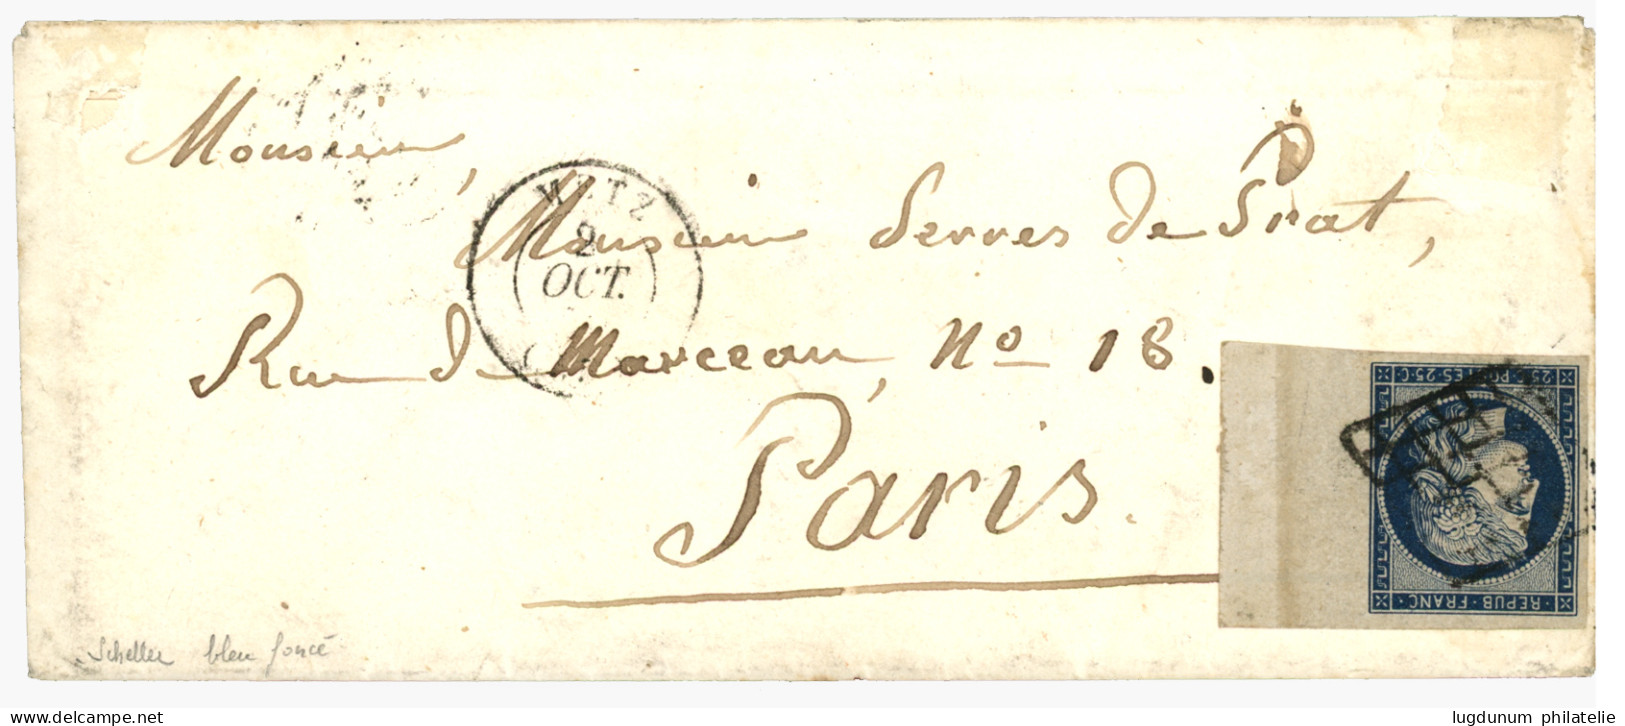 Monsieur,
METZ
2
OCT.
Monsieur Serres de Prat,
Rue de Marceau, No 18.
Paris.
25 C. POSTES 25 C.
REPUB FRANC
Scheller bleu foncé
www.delcampe.net
lugdunum philatelie